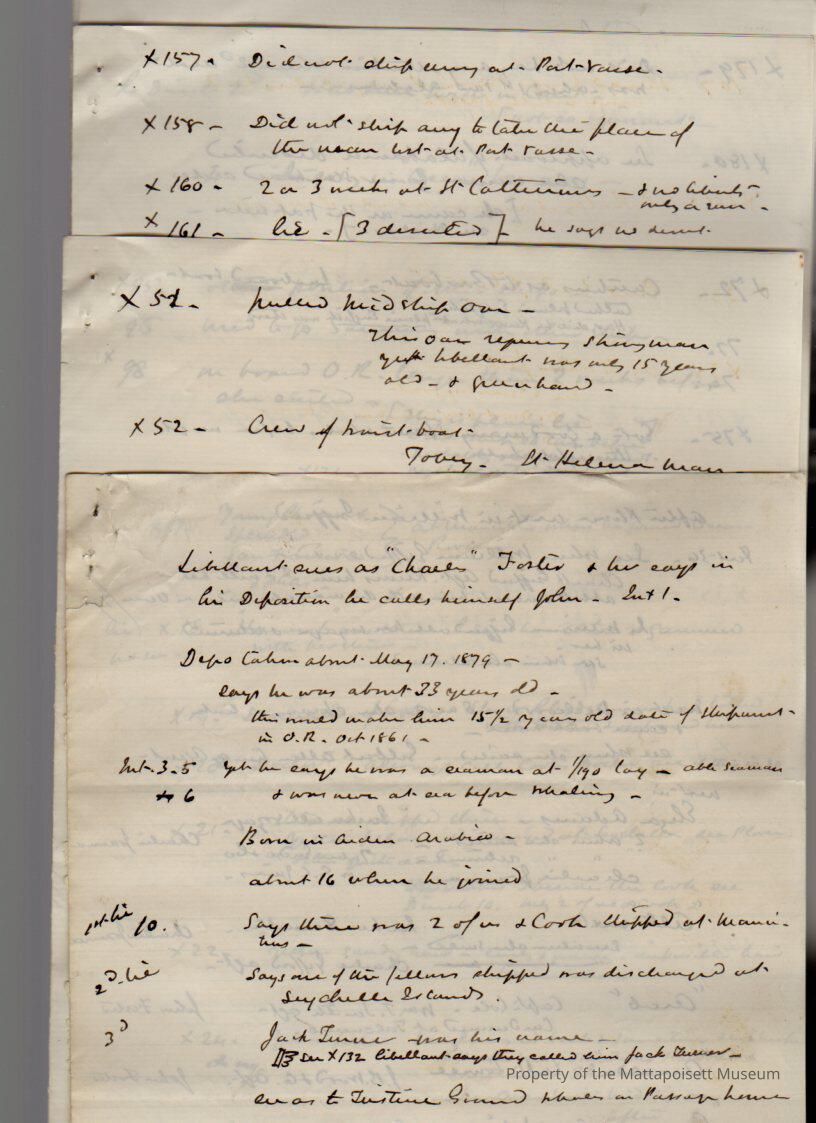 X 157. Did not ship any at Port Vasse.
X 158 - Did not ship any to take the place of
the man lost at Port Vasse -
X 160 - 2 or 3 weeks at St Catherines - & no liberty
only a run -
X 161 - lie - [3 deserted] - he says no desert.
X 51 - pulled Midship oar -
This oar requires strong man
yet libellant was only 15 years
old - & greenhand -
X 52 - Crew of waist-boat.
Tobey - St Helena man
Libellant sues as "Charles" Foster & he says in
his Deposition he calls himself John - Int 1.
Depo taken about May 17. 1879 -
says he was about 33 years old -
this would make him 15 1/2 years old date of shipment
in O.R. Oct 1861 -
Int. 3-5 yet he says he was a seaman at 1/190 lay - able seaman
6 & was never at sea before whaling -
Born in Aiden Arabia -
about 16 when he joined
1st lie 10. Says there was 2 of us & Cook shipped at Mauri-
tius -
2d lie Says one of the fellows shipped was discharged at
Seychelle Islands.
3d Jack Turner was his name -
See X 132 libellant says they called him Jack Turner -
as to Justine Ground whales on Passage home
Property of the Mattapoisett Museum